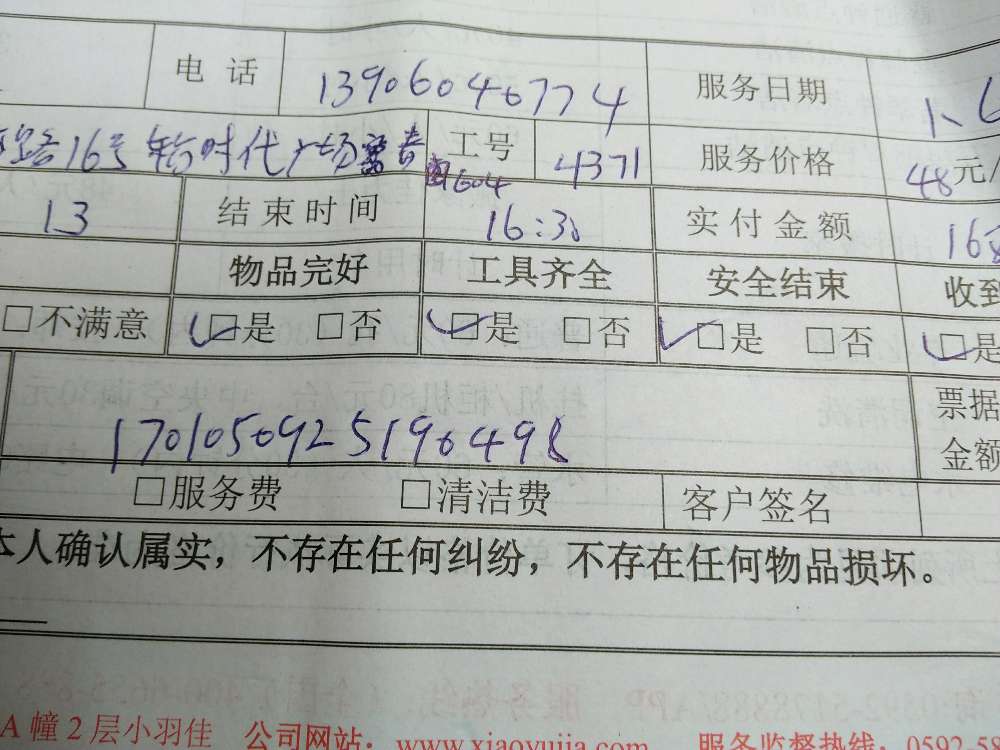 电话 13906046774 服务日期 1、6
路16号 时代广场 工号 4371 服务价格 48元/
1604
13 结束时间 16:30 实付金额 168
物品完好 工具齐全 安全结束 收到
□不满意 ☑是 □否 ☑是 □否 ☑是 □否 ☑是
170105092519649 票据
金额
□服务费 □清洁费 客户签名
本人确认属实，不存在任何纠纷，不存在任何物品损坏。
A幢2层小羽佳 公司网站：www.xiaoyujia.com 服务监督热线 0592-58